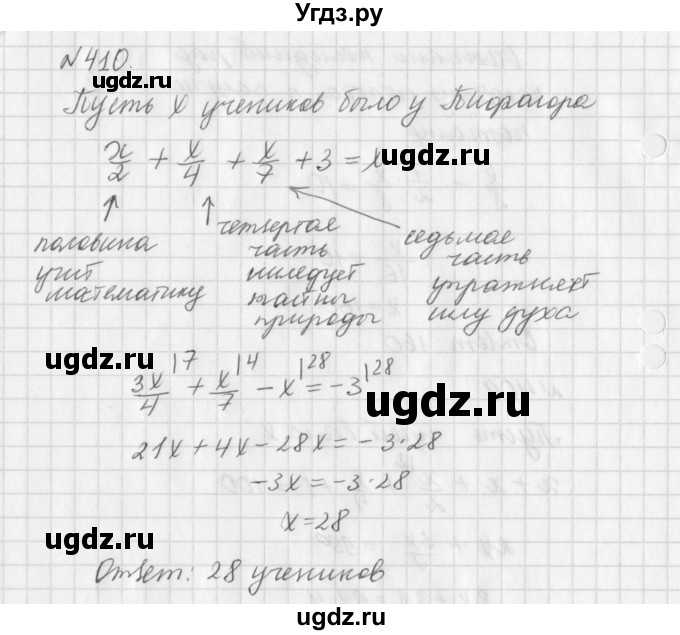 Угдз.ру
№410.
Пусть x учеников было у Пифагора
x/2 + x/4 + x/7 + 3 = x
угдз.ru
половина учит математику
четвертая часть иследует тайны природы
седьмая часть упражняет силу духа
угдз.ru
3x/4 |7 + x/7 |4 − x |28 = −3 |28
угдз.ru
21x + 4x − 28x = −3·28
−3x = −3·28
x = 28
угдз.ru
Ответ: 28 учеников
угдз.ru